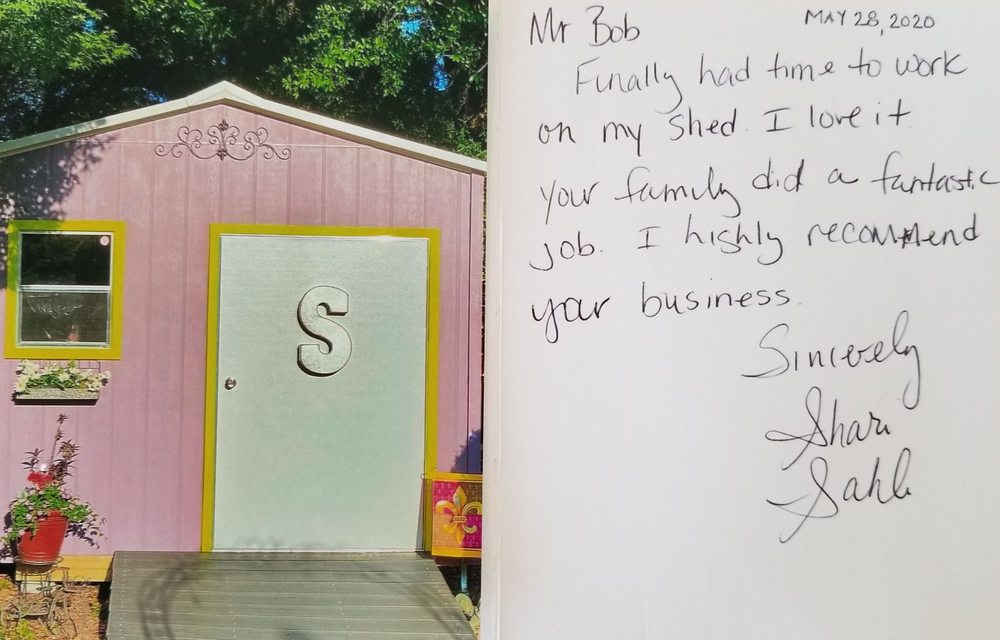 S
Mr Bob
MAY 28, 2020
Finally had time to work
on my shed. I love it
your family did a fantastic
job. I highly recommend
your business.
Sincerely
Shari
Sahl